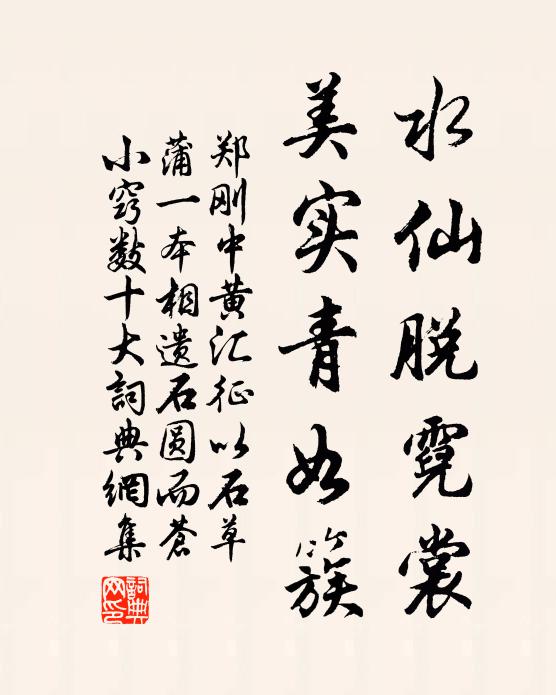 水仙脱霓裳
美实青如簇
郑刚中黄汇征以石草
蒲一本相遗石圆而苍
小窍数十大詞典網集
詞典网印